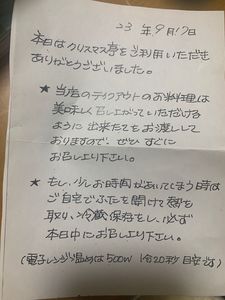 23年9月17日
本日はクリスマス亭をご利用いただき
ありがとうございました。
★ 当店のテイクアウトのお料理は
美味しく召し上がっていただける
ように出来たてをお渡しして
おりますので、ぜひすぐに
お召し上り下さい。
★ もし、少しお時間があいてしまう時は
ご自宅でふたを開けて熱を
取り、冷蔵保存をし、必ず
本日中にお召し上り下さい。
(電子レンジ温めは500W 1分20秒目安です)